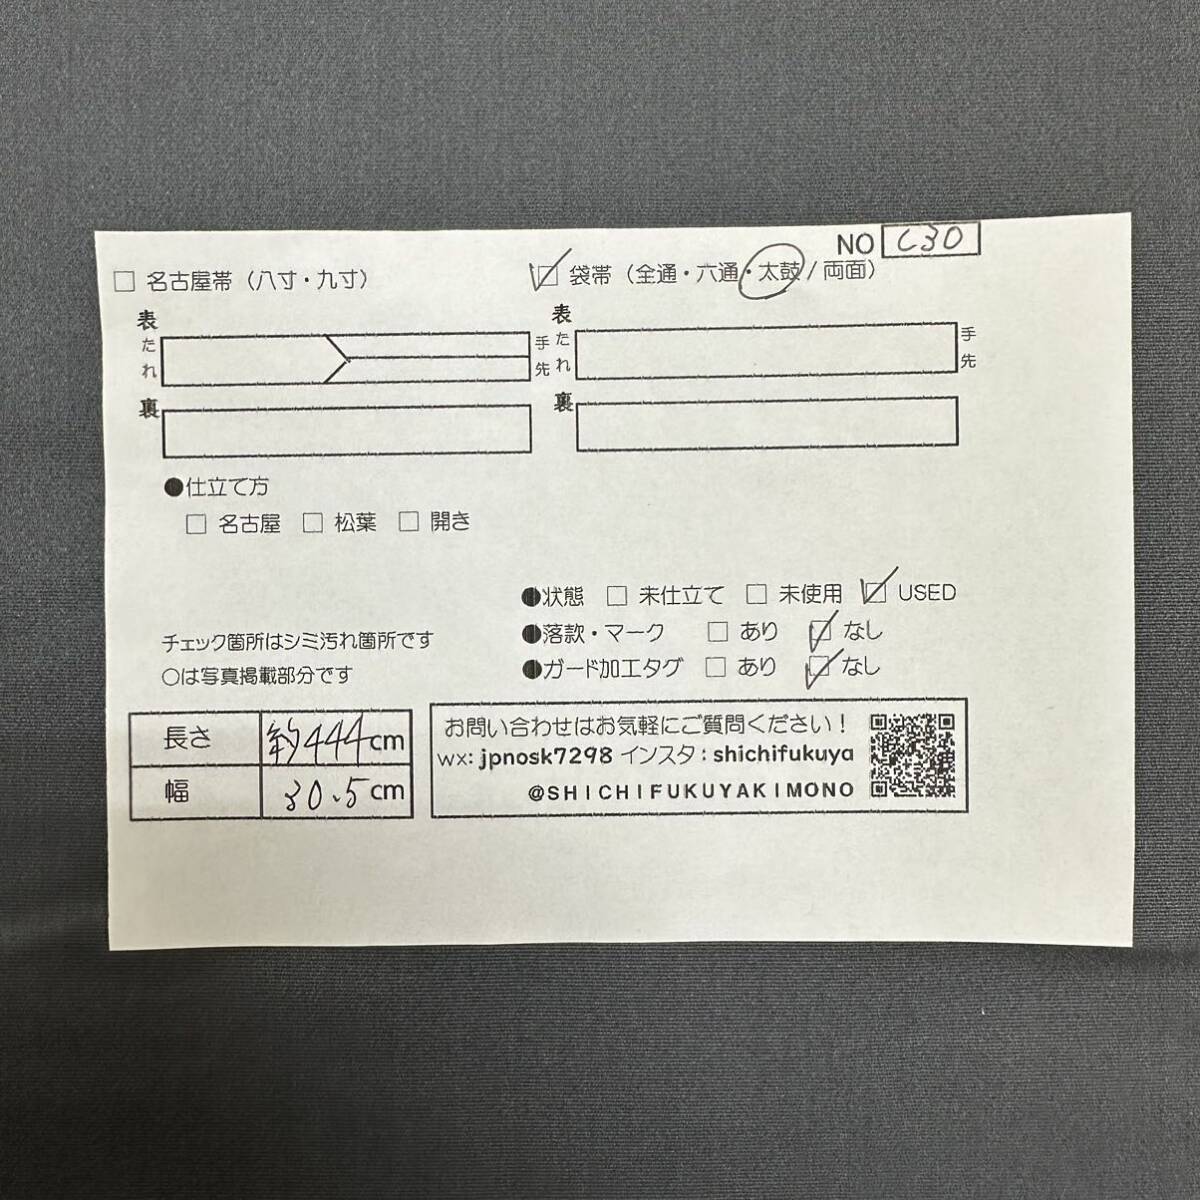 NO C30
□ 名古屋帯（八寸・九寸）
☑ 袋帯（全通・六通・太鼓/両面）
表
たれ
手先
裏
表
たれ
手先
裏
●仕立て方
□ 名古屋 □ 松葉 □ 開き
●状態 □ 未仕立て □ 未使用 ☑ USED
●落款・マーク □ あり ☑ なし
●ガード加工タグ □ あり ☑ なし
チェック箇所はシミ汚れ箇所です
○は写真掲載部分です
長さ 約444cm
幅 30.5cm
お問い合わせはお気軽にご質問ください！
wx: jpnosk7298 インスタ：shichifukuya
@SHICHIFUKUYAKIMONO